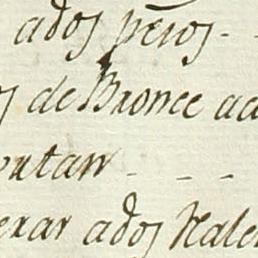 ados pesos - -
os de Bronce ad
ortan - - -
erar ados Reale